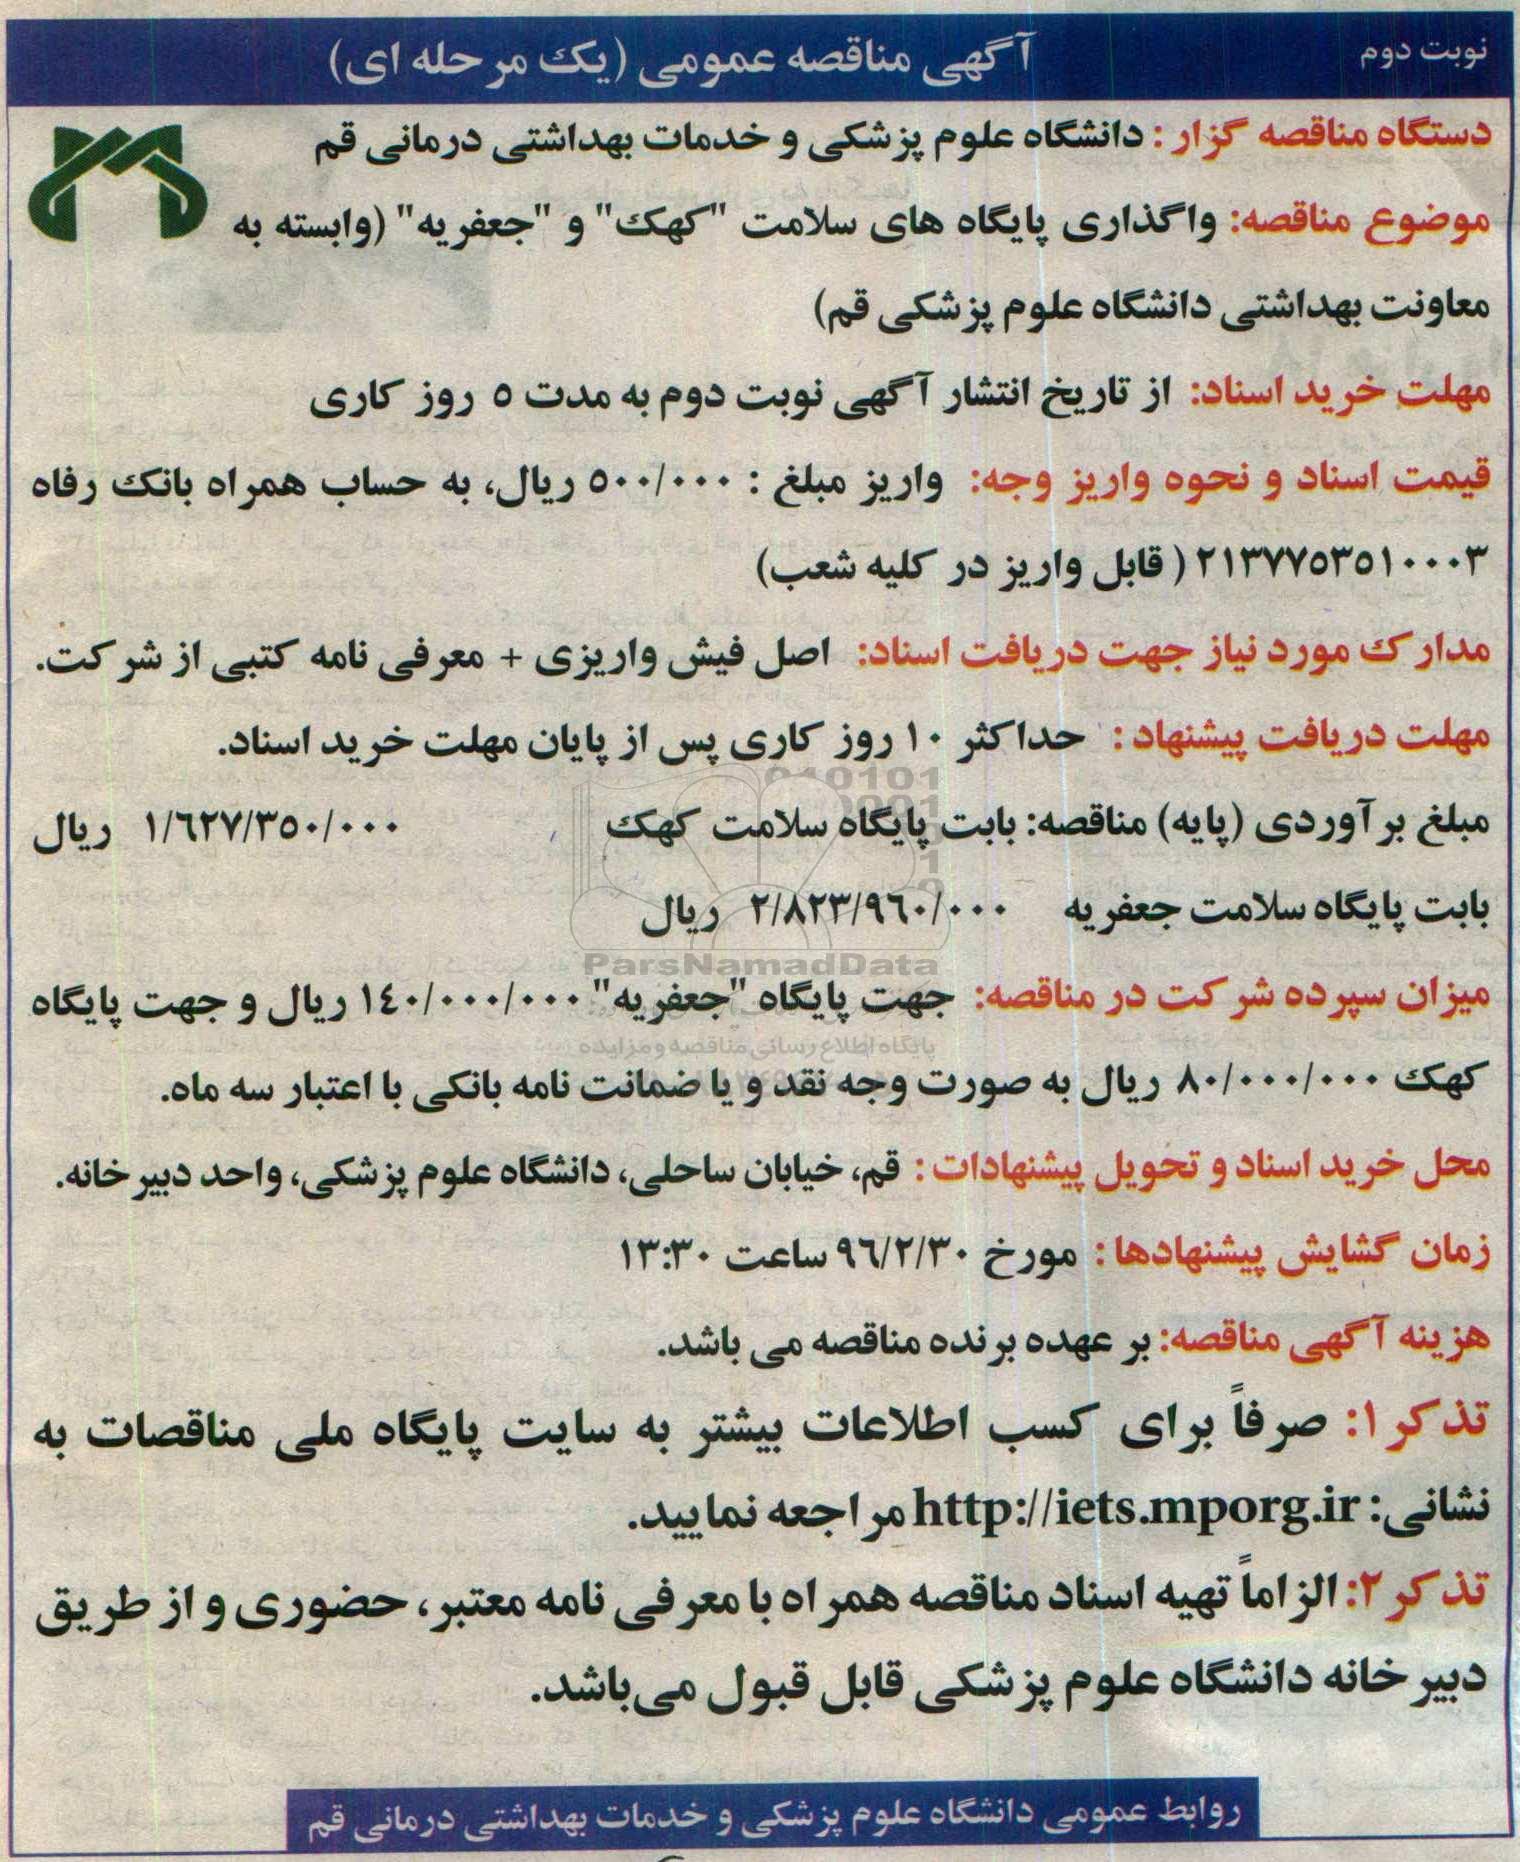 نوبت دوم
آگهی مناقصه عمومی (یک مرحله ای)
دستگاه مناقصه گزار : دانشگاه علوم پزشکی و خدمات بهداشتی درمانی قم
موضوع مناقصه: واگذاری پایگاه های سلامت "کهک" و "جعفریه" (وابسته به
معاونت بهداشتی دانشگاه علوم پزشکی قم)
مهلت خرید اسناد: از تاریخ انتشار آگهی نوبت دوم به مدت ۵ روز کاری
قیمت اسناد و نحوه واریز وجه: واریز مبلغ : ۵۰۰/۰۰۰ ریال، به حساب همراه بانک رفاه
۲۱۳۷۷۵۳۵۱۰۰۰۳ ( قابل واریز در کلیه شعب)
مدارک مورد نیاز جهت دریافت اسناد: اصل فیش واریزی + معرفی نامه کتبی از شرکت.
مهلت دریافت پیشنهاد : حداکثر ۱۰ روز کاری پس از پایان مهلت خرید اسناد.
مبلغ برآوردی (پایه) مناقصه: بابت پایگاه سلامت کهک ۱/۶۲۷/۳۵۰/۰۰۰ ریال
بابت پایگاه سلامت جعفریه ۲/۸۲۳/۹۶۰/۰۰۰ ریال
ParsNamadData
میزان سپرده شرکت در مناقصه: جهت پایگاه "جعفریه" ۱۴۰/۰۰۰/۰۰۰ ریال و جهت پایگاه
پایگاه اطلاع رسانی مناقصه و مزایده
کهک ۸۰/۰۰۰/۰۰۰ ریال به صورت وجه نقد و یا ضمانت نامه بانکی با اعتبار سه ماه.
محل خرید اسناد و تحویل پیشنهادات : قم، خیابان ساحلی، دانشگاه علوم پزشکی، واحد دبیرخانه.
زمان گشایش پیشنهادها : مورخ ۹۶/۲/۳۰ ساعت ۱۳:۳۰
هزینه آگهی مناقصه: بر عهده برنده مناقصه می باشد.
تذکر۱: صرفاً برای کسب اطلاعات بیشتر به سایت پایگاه ملی مناقصات به
نشانی: http://iets.mporg.ir مراجعه نمایید.
تذکر۲: الزاماً تهیه اسناد مناقصه همراه با معرفی نامه معتبر، حضوری و از طریق
دبیرخانه دانشگاه علوم پزشکی قابل قبول می‌باشد.
روابط عمومی دانشگاه علوم پزشکی و خدمات بهداشتی درمانی قم